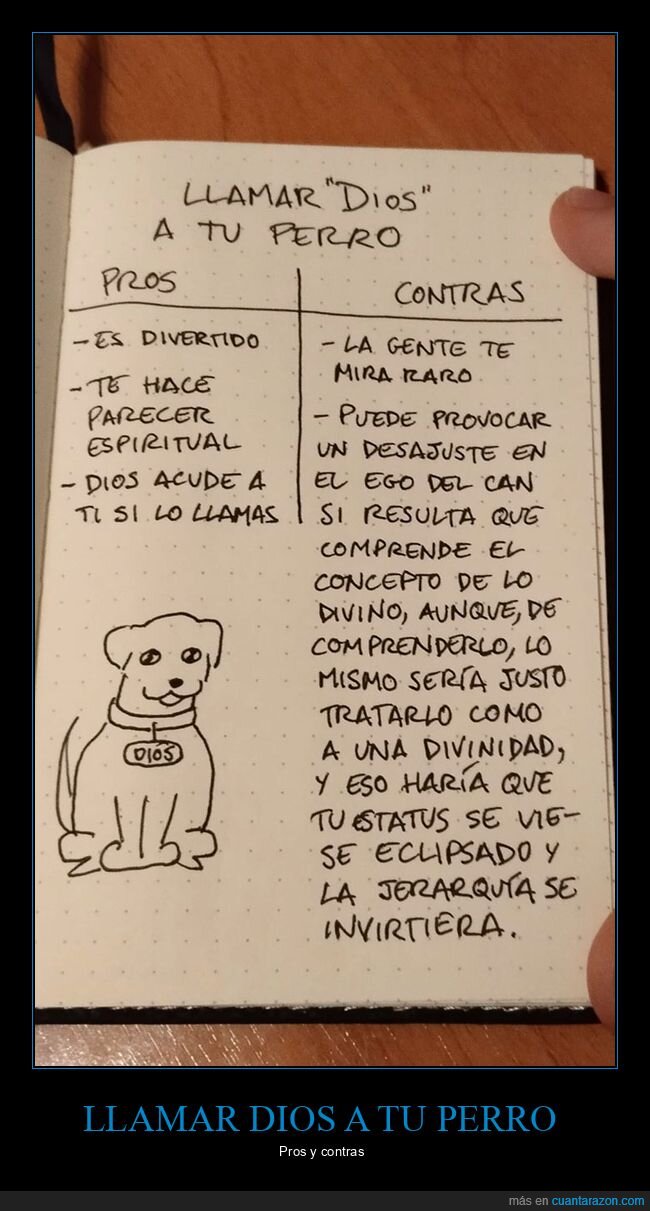 LLAMAR "DIOS"
A TU PERRO
PROS
- ES DIVERTIDO
- TE HACE
PARECER
ESPIRITUAL
- DIOS ACUDE A
TI SI LO LLAMAS
CONTRAS
- LA GENTE TE
MIRA RARO
- PUEDE PROVOCAR
UN DESAJUSTE EN
EL EGO DEL CAN
SI RESULTA QUE
COMPRENDE EL
CONCEPTO DE LO
DIVINO, AUNQUE, DE
COMPRENDERLO, LO
MISMO SERÍA JUSTO
TRATARLO COMO
A UNA DIVINIDAD,
Y ESO HARÍA QUE
TU ESTATUS SE VIE-
SE ECLIPSADO Y
LA JERARQUÍA SE
INVIRTIERA.
DIOS
LLAMAR DIOS A TU PERRO
Pros y contras
más en cuantarazon.com